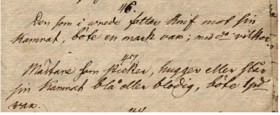 46.
Den som i vrede fatter knif mot sin
Kamrat, böte en mark van; med
47
Mästare som sticker, hugger eller slår
sin Kamrat blå eller blodig, böte
van.